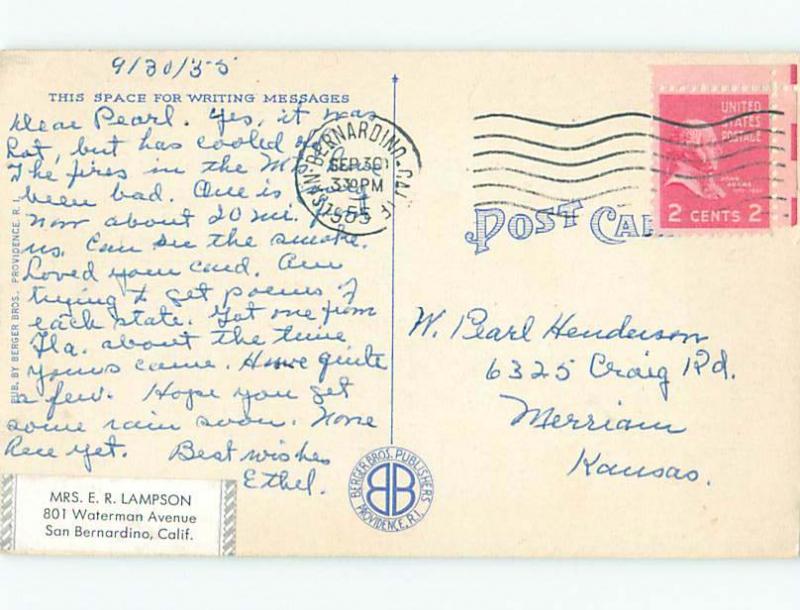 9/30/55
THIS SPACE FOR WRITING MESSAGES
Dear Pearl. Yes, it was
hot, but has cooled off some
The fires in the Mts. have
been bad. One is
now about 20 mi. from
us. Can see the smoke.
Loved your card. Am
trying to get poems of
each state. Got one from
Fla. about the time
yours came. Have quite
a few. Hope you get
some rain soon. None
here yet. Best wishes
Ethel.
PUB. BY BERGER BROS., PROVIDENCE, R. I.
MRS. E. R. LAMPSON
801 Waterman Avenue
San Bernardino, Calif.
SAN BERNARDINO, CALIF.
SEP 30
330 PM
1955
UNITED
STATES
POSTAGE
JOHN ADAMS
2 CENTS 2
POST CARD
W. Pearl Henderson
6325 Craig Rd.
Merriam
Kansas.
BERGER BROS. PUBLISHERS
BB
PROVIDENCE, R.I.